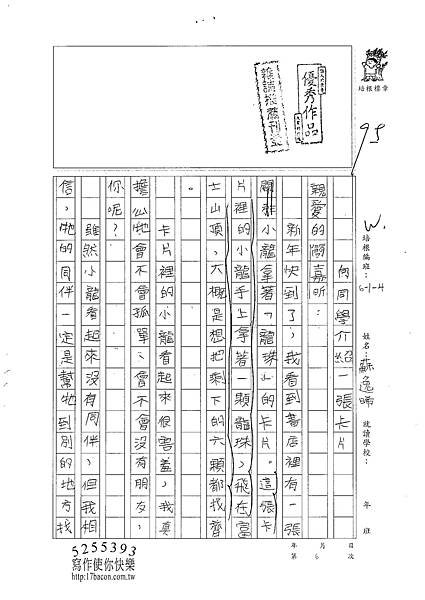 培根標章
優秀作品
推薦刊登
95
W
培根編班：6-1-4
姓名：蘇逸晞
就讀學校：
年 班
年 月 日
第 6 次
向同學介紹一張卡片
親愛的簡嘉昕：
新年快到了，我看到書店裡有一張
小龍拿著「龍珠」的卡片。這張卡
片裡的小龍手上拿著一顆龍珠，飛在富
士山頂，大概是想把剩下的六顆都找齊
。
卡片裡的小龍看起來很害羞，我真
擔心牠會不會孤單、會不會沒有朋友，
你呢？
雖然小龍看起來沒有同伴，但我相
信，牠的同伴一定是幫牠到別的地方找
5255393
寫作使你快樂
http://17bacon.com.tw